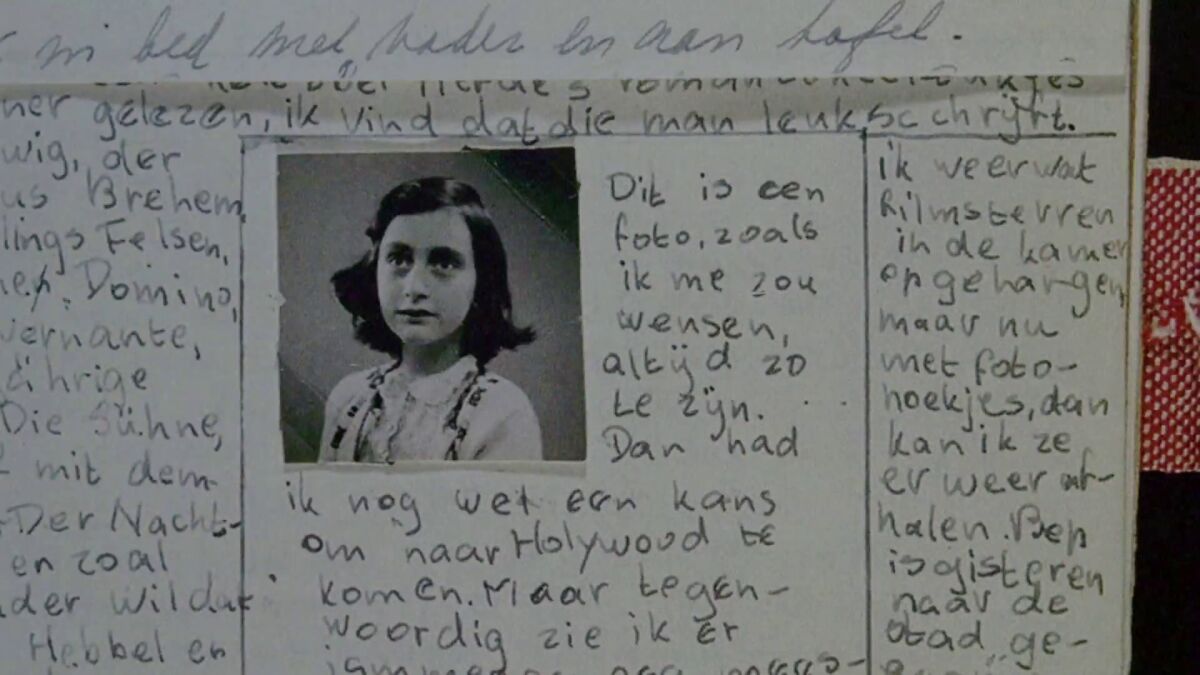 in bed met vader en aan tafel.
gelezen, ik vind dat die man leuk schrijft.
wig, der
us Brehem,
lings Felsen,
Domino,
vernante,
jährige
Die Sühne,
mit dem
Der Nacht-
en zoal
der wil dat
Hebbel en
Dit is een
foto, zoals
ik me zou
wensen,
altijd zo
te zijn.
Dan had
ik nog wel een kans
om naar Holywood te
komen. Maar tegen-
woordig zie ik er
ik weer wat
filmsterren
in de kamer
opgehangen,
maar nu
met foto-
hoekjes, dan
kan ik ze
er weer af-
halen. Bep
is gisteren
naar de
stad ge-